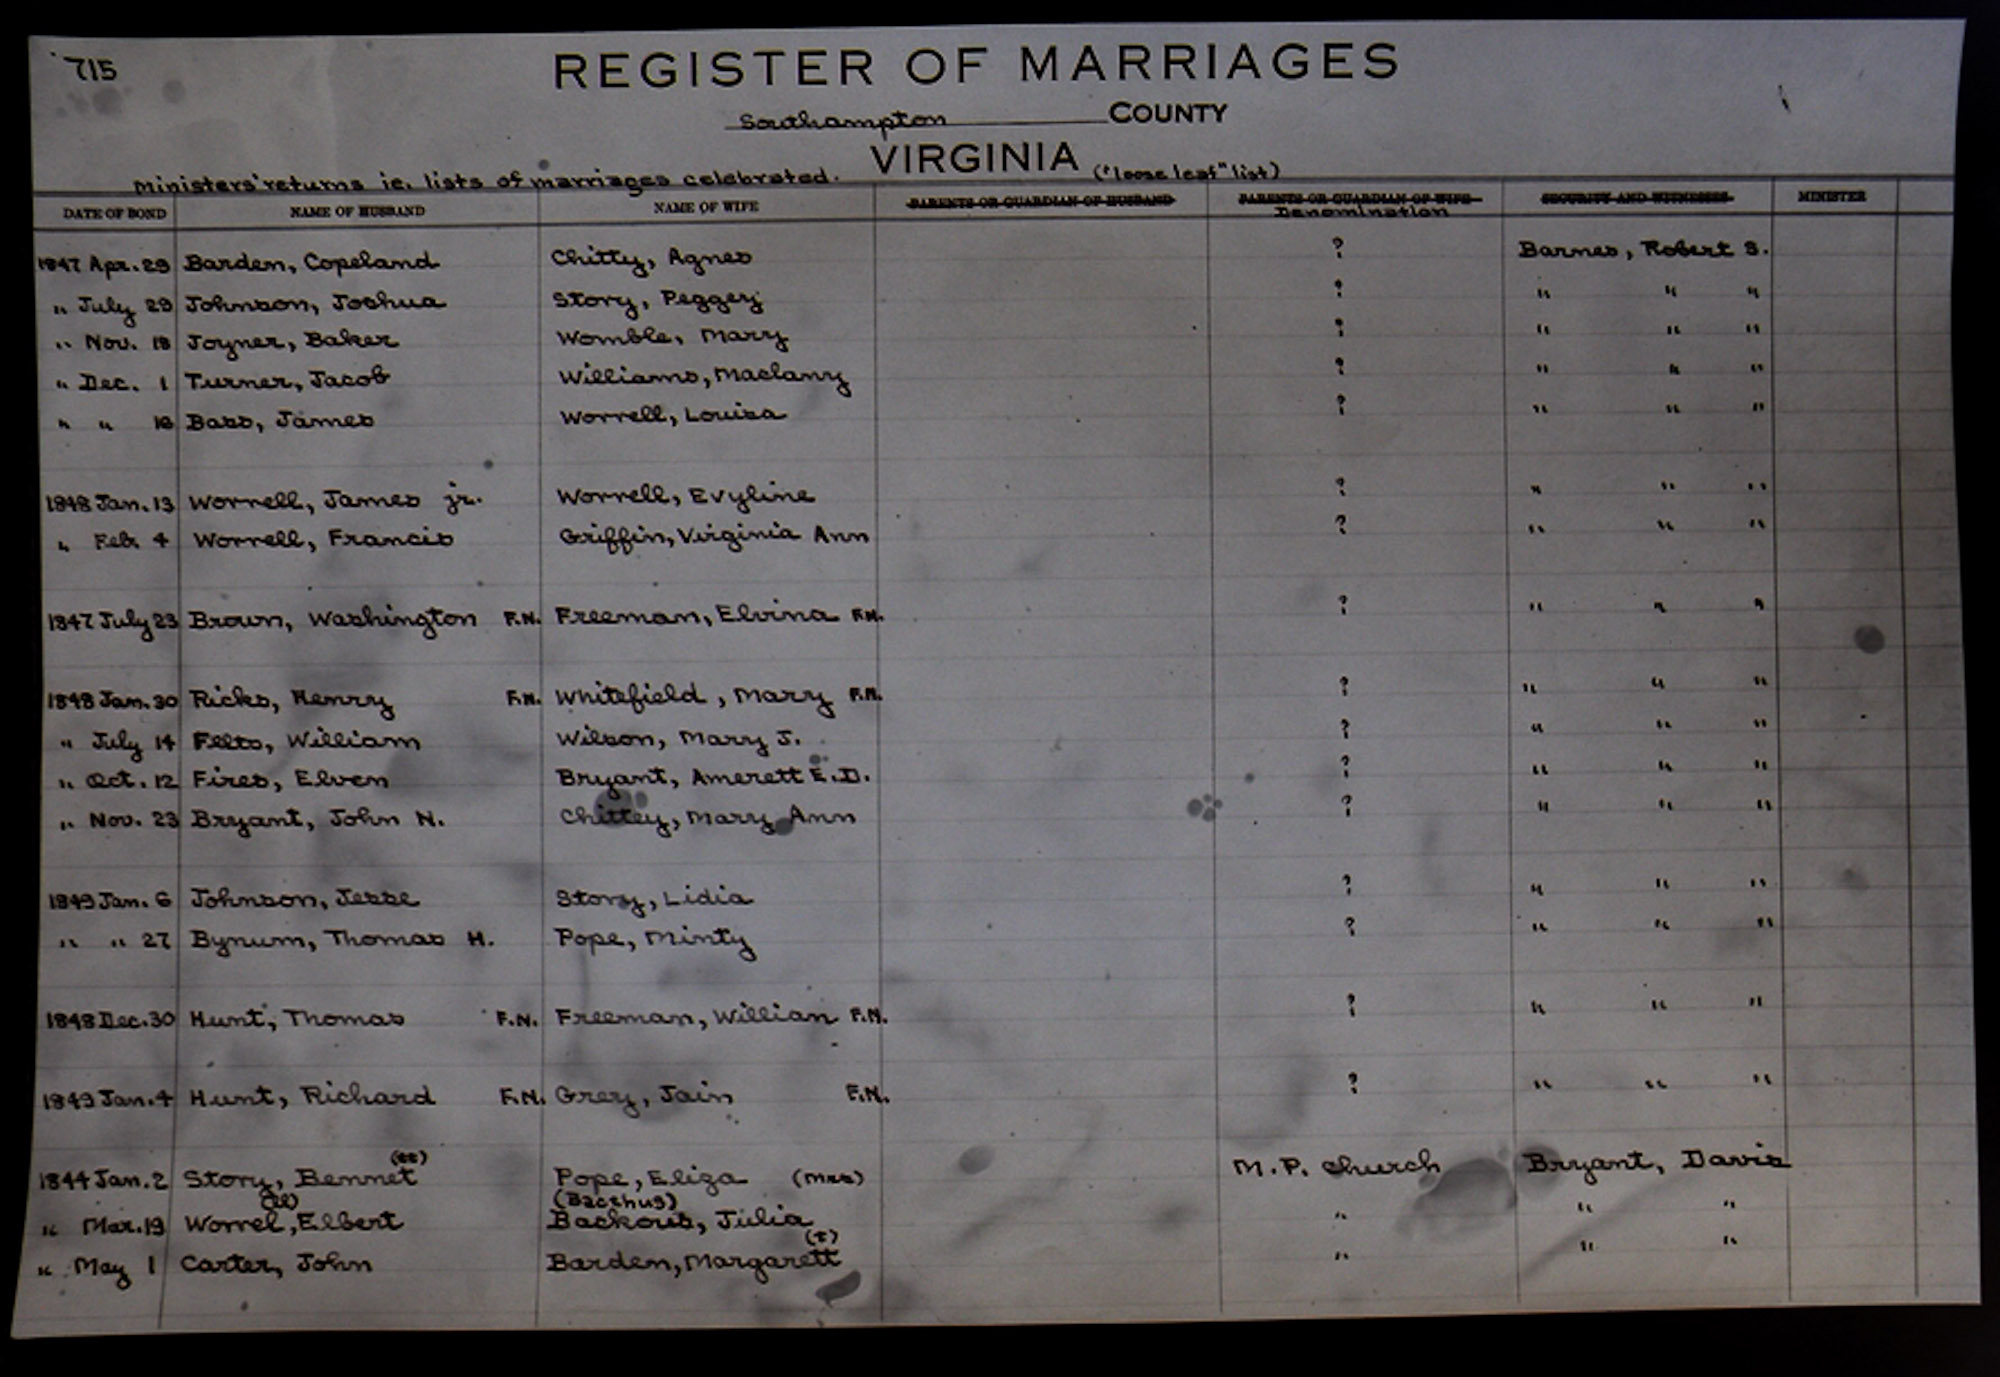 715
REGISTER OF MARRIAGES
Southampton COUNTY
VIRGINIA ("loose leaf" list)
Ministers' returns ie. lists of marriages celebrated.
DATE OF BOND NAME OF HUSBAND NAME OF WIFE PARENTS OR GUARDIAN OF HUSBAND PARENTS OR GUARDIAN OF WIFE SECURITY AND WITNESSES MINISTER
Denomination
1847 Apr. 29 Barden, Copeland Chitty, Agnes ? Barnes, Robert S.
" July 29 Johnson, Joshua Story, Peggey ? " " "
" Nov. 18 Joyner, Baker Womble, Mary ? " " "
" Dec. 1 Turner, Jacob Williams, Maclany ? " " "
" " 16 Bass, James Worrell, Louisa ? " " "
1848 Jan. 13 Worrell, James jr. Worrell, Evyline ? " " "
" Feb. 4 Worrell, Francis Griffin, Virginia Ann ? " " "
1847 July 23 Brown, Washington F.N. Freeman, Elvina F.N. ? " " "
1848 Jan. 30 Ricks, Henry F.N. Whitefield, Mary F.N. ? " " "
" July 14 Felts, William Wilson, Mary J. ? " " "
" Oct. 12 Fires, Elven Bryant, Amerett E.D. ? " " "
" Nov. 23 Bryant, John N. Chittey, Mary Ann ? " " "
1849 Jan. 6 Johnson, Jesse Story, Lidia ? " " "
" " 27 Bynum, Thomas H. Pope, Minty ? " " "
1848 Dec. 30 Hunt, Thomas F.N. Freeman, Willian F.N. ? " " "
1849 Jan. 4 Hunt, Richard F.N. Grey, Jain F.N. ? " " "
(tt)
1844 Jan. 2 Story, Bennet Pope, Eliza (Mrs) M.P. Church Bryant, Davis
(ll) (Bacthus)
" Mar. 19 Worrel, Elbert Backous, Julia " " "
(t)
" May 1 Carter, John Barden, Margarett " " "